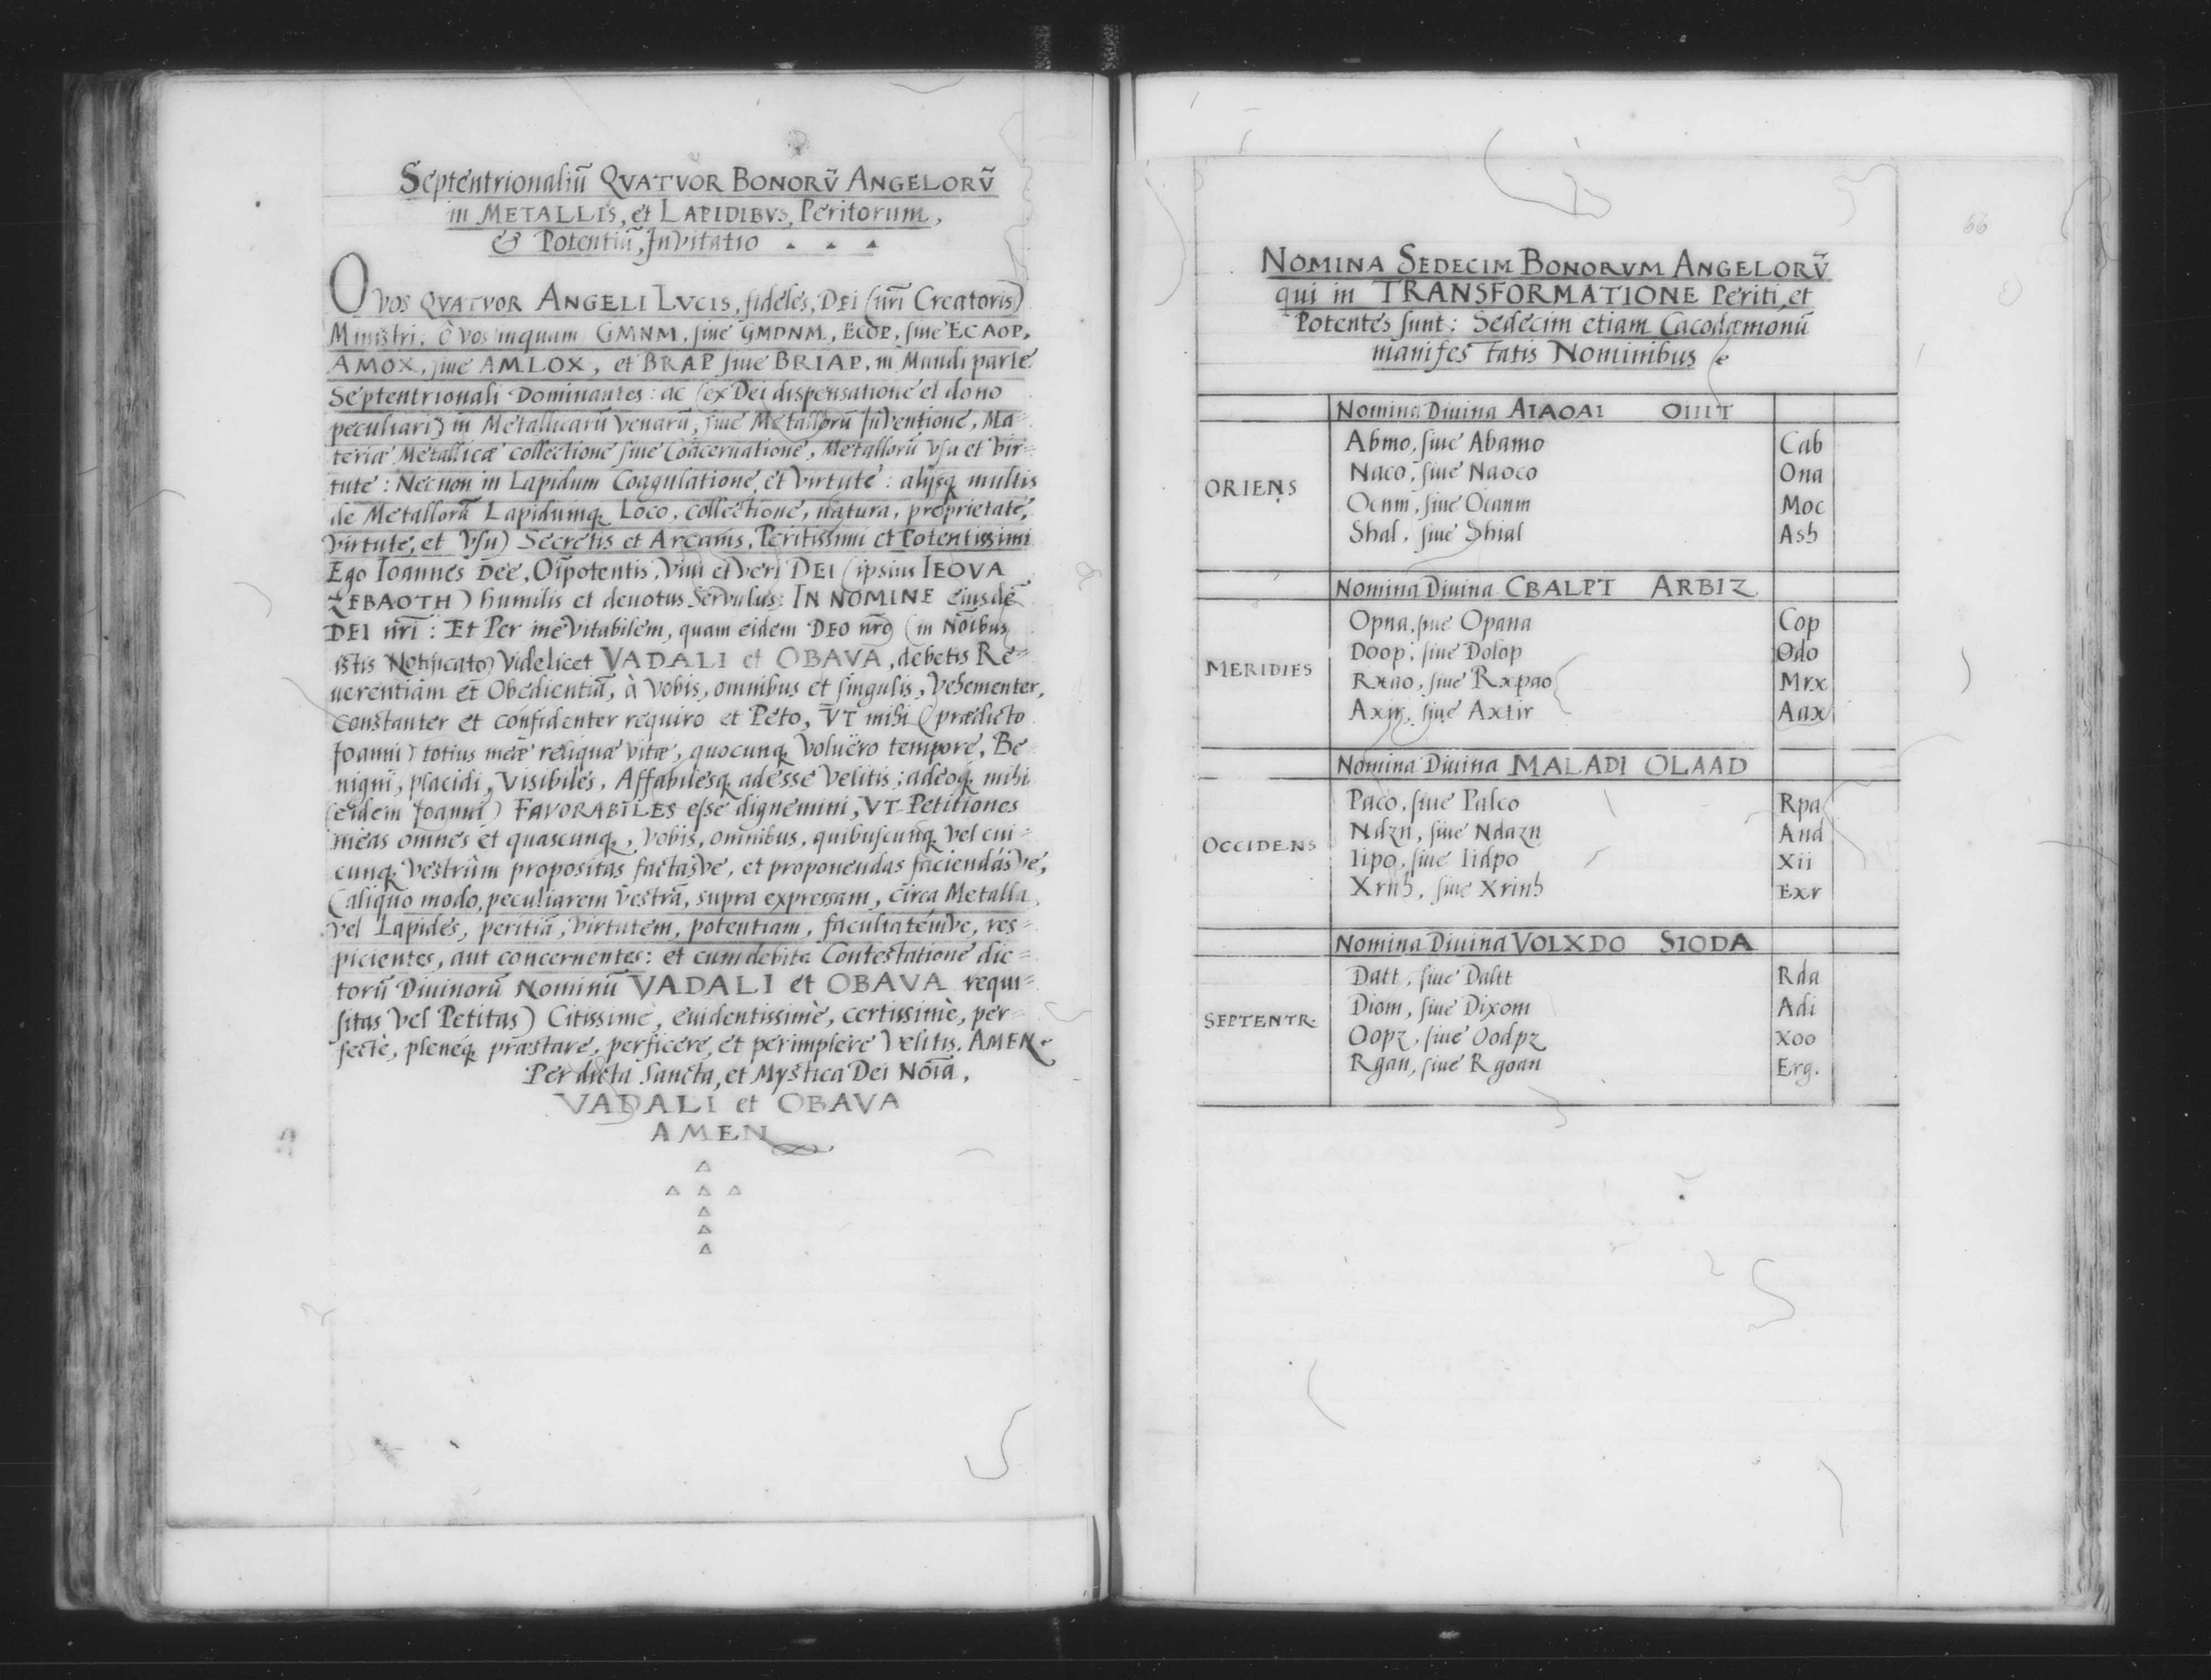 Septentrionaliũ QVATVOR BONORṼ ANGELORṼ
in METALLIS, et LAPIDIBVS, Peritorum,
& Potentiũ, Invitatio
O vos QVATVOR ANGELI LVCIS, fideles, DEI (nr̃i Creatoris)
Ministri: ô vos inquam GMNM, siue GMDNM, ECOP, siue ECAOP,
AMOX, siue AMLOX, et BRAP siue BRIAP, in Mundi parte
Septentrionali Dominantes: ac (ex Dei dispensatione et dono
peculiari) in Metallicarũ venarũ, siue Metallorũ Inventione, Ma-
teriæ Metallicæ collectione siue Coaceruatione, Metallorũ vsu et vir-
tute: Necnon in Lapidum Coagulatione, et virtute: alijsq multis
de Metallorũ Lapidumq Loco, collectione, natura, proprietate,
virtute, et vsu) Secretis et Arcanis, Peritissimi et Potentissimi
Ego Ioannes Dee, Oĩpotentis, vivi et veri DEI (ipsius IEOVA
ZEBAOTH) humilis et deuotus Servulus: IN NOMINE eiusdẽ
DEI nr̃i: Et Per inevitabilem, quam eidem DEO nr̃o (in Nõibus
istis Notificato) videlicet VADALI et OBAVA, debetis Re=
uerentiam et Obedientiã, à vobis, omnibus et singulis, vehementer,
constanter et confidenter requiro et Peto, VT mihi (prædicto
Ioanni) totius meæ reliquæ vitæ, quocunq voluëro tempore, Be
nigni, placidi, visibiles, Affabilesq adesse velitis; adeoq mihi
(eidem Ioanni) FAVORABILES esse dignemini, VT Petitiones
meas omnes et quascunq, vobis, omnibus, quibuscunq vel cui=
cunq vestrûm propositas factasve, et proponendas faciendásve,
(aliquo modo, peculiarem vestrã, supra expressam, circa Metalla,
vel Lapides, peritiã, virtutem, potentiam, facultatémve, res=
picientes, aut concernentes: et cum debita Contestatione dic=
torũ Diuinorũ Nominũ VADALI et OBAVA requi=
sitas vel Petitas) Citissimè, euidentissimè, certissimè, per=
fectè, plenéq præstare, perficere, et perimplere velitis. AMEN.
Per dicta Sancta, et Mystica Dei Nõia,
VADALI et OBAVA
AMEN
66
NOMINA SEDECIM BONORVM ANGELORṼ
qui in TRANSFORMATIONE Periti, et
Potentes sunt: Sedecim etiam Cacodæmonũ
manifestatis Nominibus
Nomina Diuina AIAOAI OIIIT
ORIENS
Abmo, siue Abamo Cab
Naco, siue Naoco Ona
Ocnm, siue Ocanm Moc
Shal, siue Shial Ash
Nomina Diuina CBALPT ARBIZ
MERIDIES
Opna, siue Opana Cop
Doop, siue Dolop Odo
Rxao, siue Rxpao Mrx
Axir, siue Axtir Aax
Nomina Diuina MALADI OLAAD
OCCIDENS
Paco, siue Palco Rpa
Ndzn, siue Ndazn And
Iipo, siue Iidpo Xii
Xrnh, siue Xrinh Exr
Nomina Diuina VOLXDO SIODA
SEPTENTR.
Datt, siue Daltt Rda
Diom, siue Dixom Adi
Oopz, siue Oodpz Xoo
Rgan, siue Rgoan Erg.